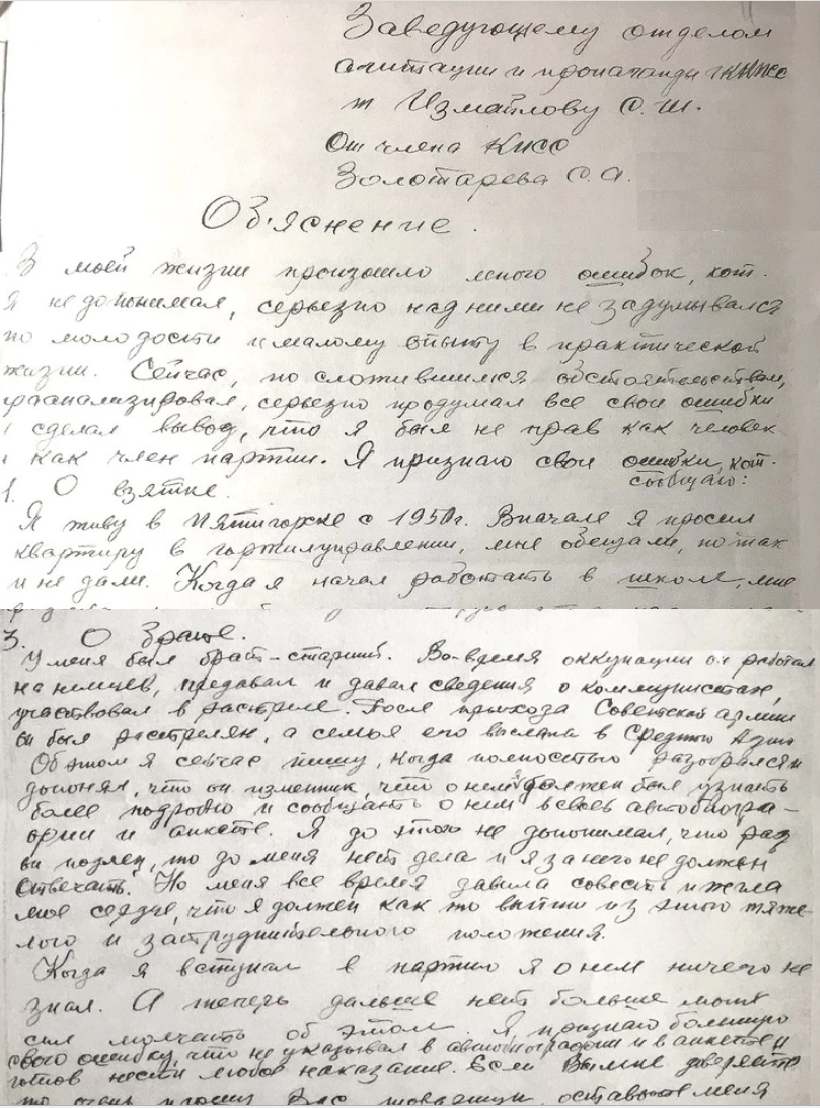 Заведующему отделом
агитации и пропаганды ГККПСС
т Измайлову С. Ш.
От члена КПСС
Золотарева С. А.
Об'яснение.
В моей жизни произошло много ошибок, кот.
я недопонимал, серьезно над ними не задумывался
по молодости и малому опыту в практической
жизни. Сейчас, по сложившимся обстоятельствам,
проанализировал, серьезно продумал все свои ошибки
и сделал вывод, что я был не прав как человек
и как член партии. Я признаю свои ошибки, кот.
сообщаю:
1. О взятке.
Я живу в Пятигорске с 1950г. Вначале я просил
квартиру в горжилуправлении, мне обещали, но так
и не дали. Когда я начал работать в школе, мне
3. О брате.
У меня был брат-старший. Во время оккупации он работал
на немцев, предавал и давал сведения о коммунистах,
участвовал в расстреле. После прихода Советской армии
он был расстрелян, а семья его выслана в Среднюю Азию
Об этом я сейчас пишу, когда полностью разобрался и
допонял, что он изменник, что о нем я должен был узнать
более подробно и сообщать о нем в своей автобиогра-
фии и анкете. Я до этого не допонимал, что раз
он подлец, то до меня нет дела и я за него не должен
отвечать. Но меня все время давила совесть и жгла
мое сердце, что я должен как то выйти из этого тяже-
лого и затруднительного положения.
Когда я вступал в партию я о нем ничего не
знал. А теперь дальше нет больше моих
сил молчать об этом. Я, признаю большую
свою ошибку, что не указывал в автобиографии и в анкете и
готов нести любое наказание. Если Вы мне доверяете
то очень прошу Вас товарищи, оставьте меня